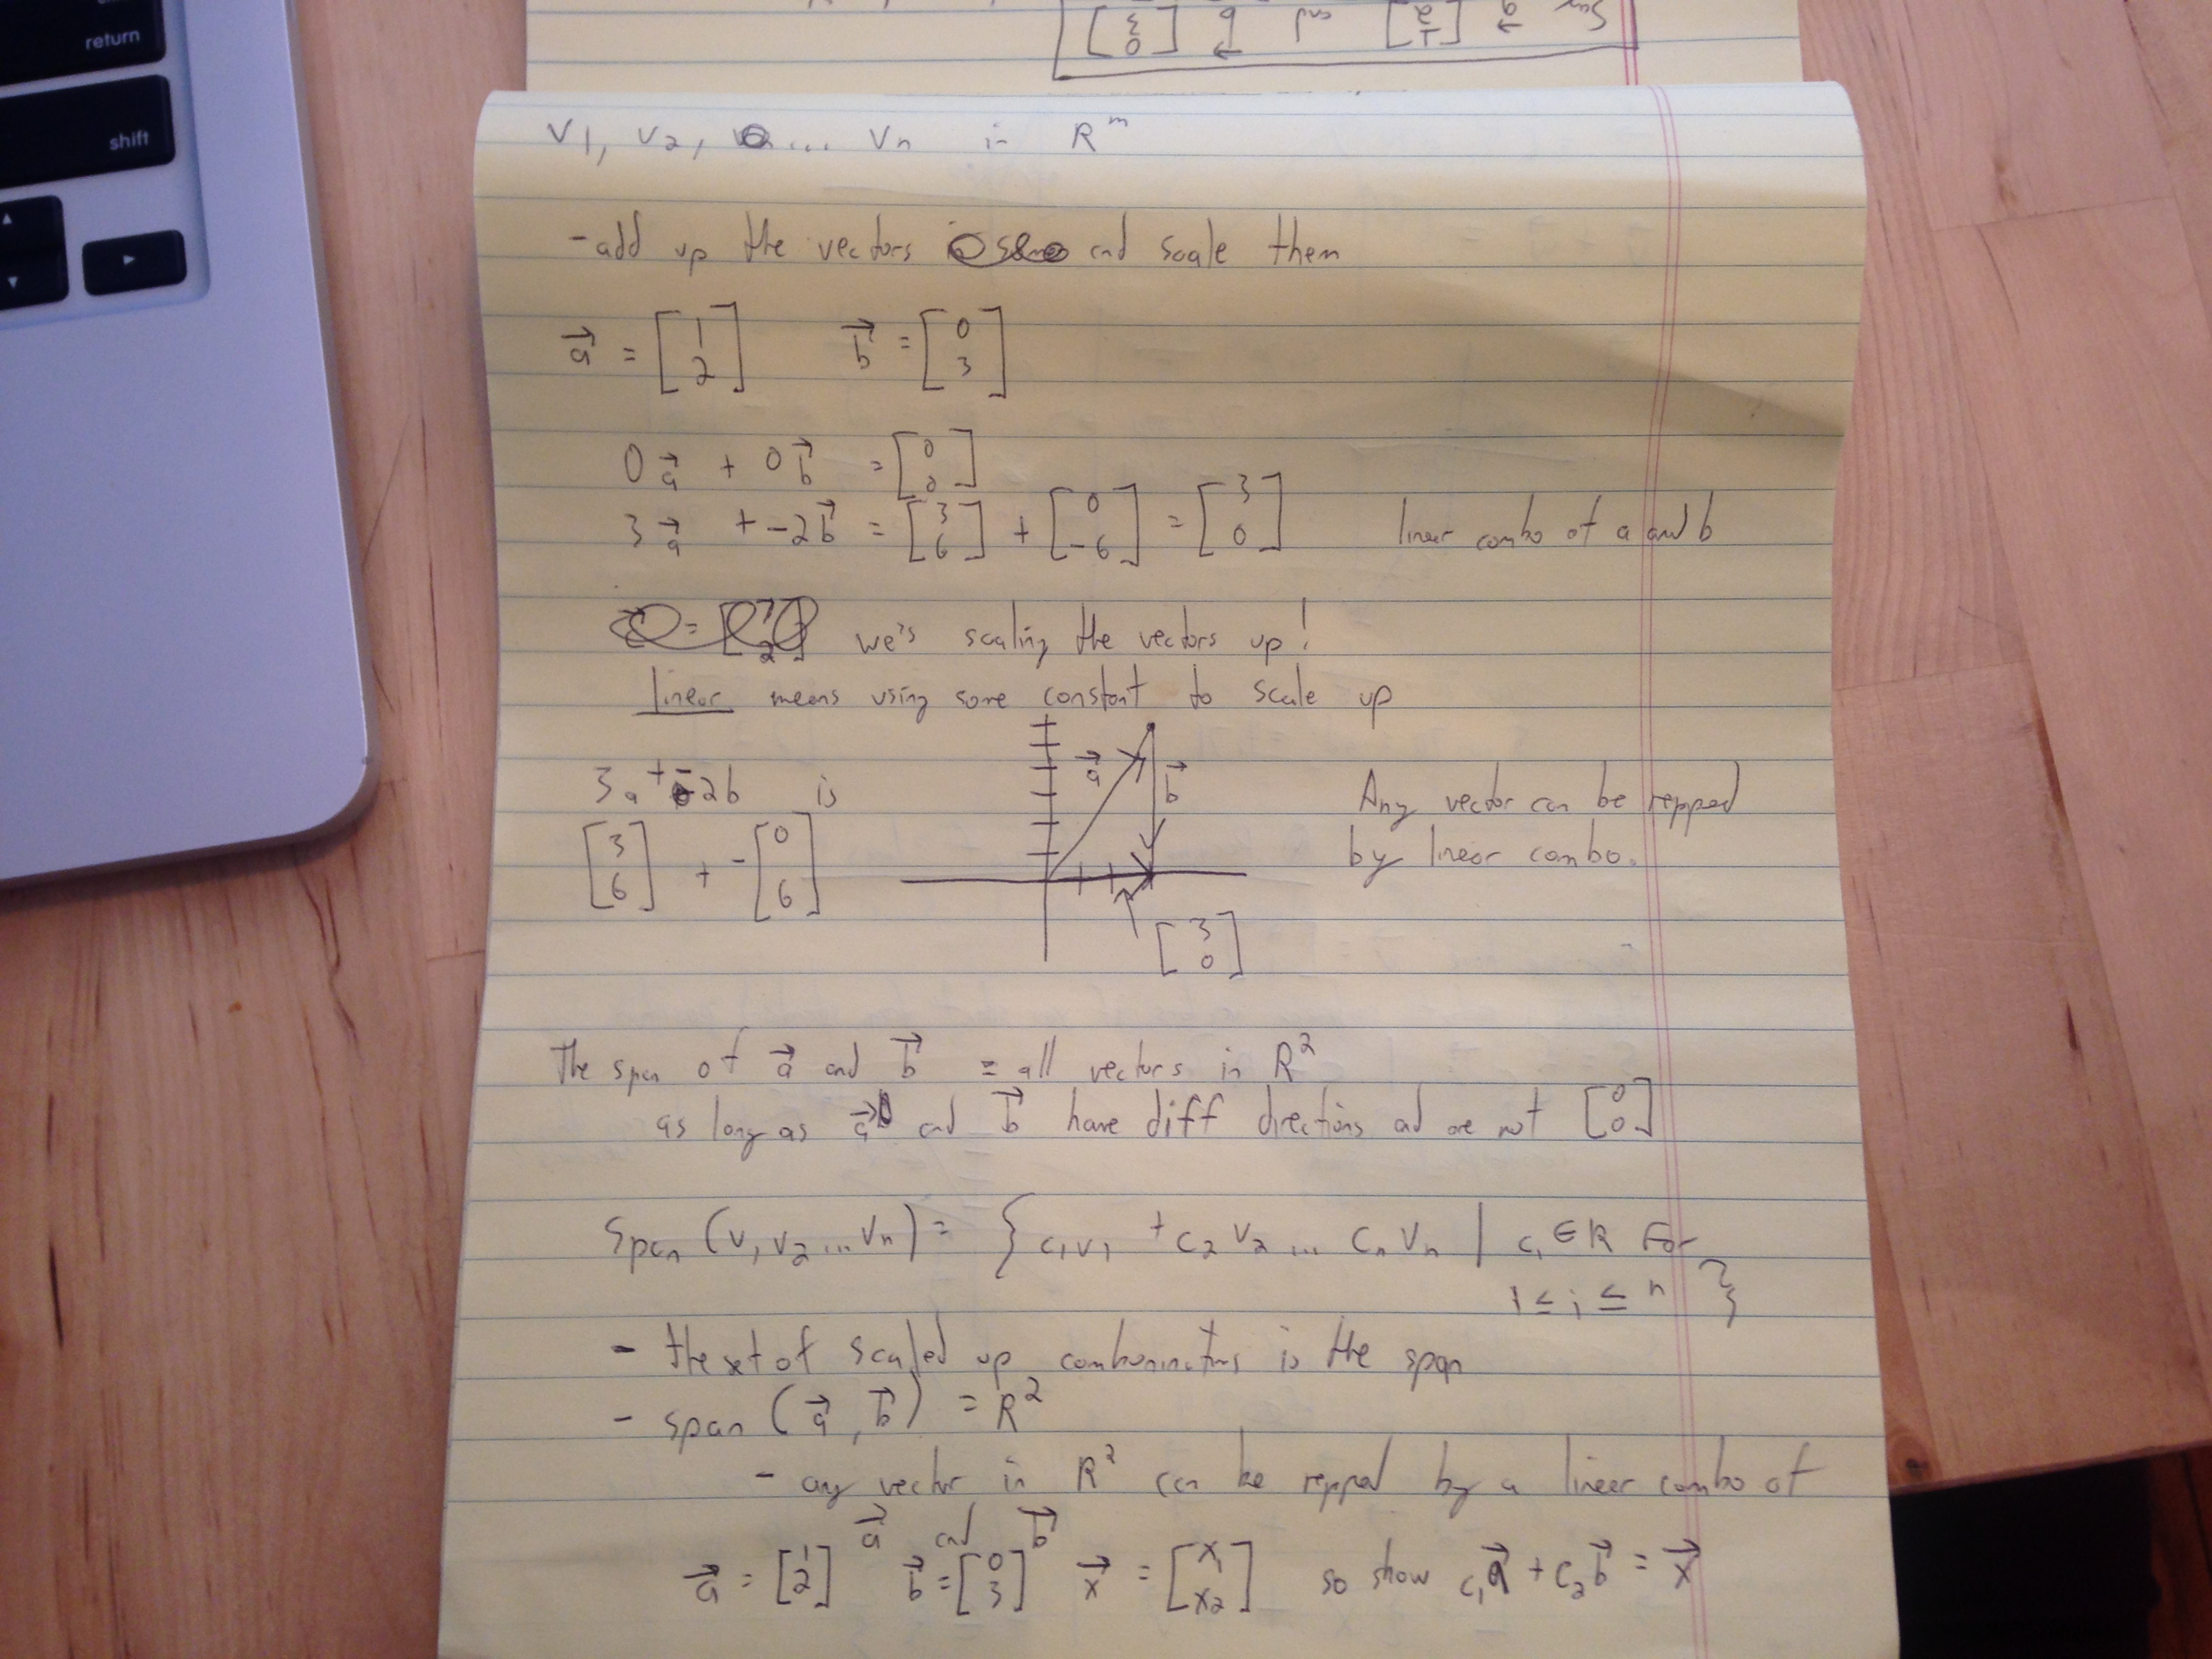 v1, v2, ... vn in R^m
- add up the vectors and scale them
a⃗ = [1 2] b⃗ = [0 3]
0a⃗ + 0b⃗ = [0 0]
3a⃗ + -2b⃗ = [3 6] + [0 -6] = [3 0] linear combo of a and b
we's scaling the vectors up!
linear means using some constant to scale up
3a + -2b is Any vector can be repped
[3 6] + -[0 6] by linear combo.
a⃗
b⃗
[3 0]
The span of a⃗ and b⃗ = all vectors in R²
as long as a⃗ and b⃗ have diff directions ad are not [0 0]
Span (v1 v2 ... vn) = { c1v1 + c2v2 ... cnvn | ci ∈ R for
1 ≤ i ≤ n }
- the xt of scaled up comboninations is the span
- span (a⃗, b⃗) = R²
- any vector in R² can be repped by a linear combo of
a⃗ and b⃗
a⃗ = [1 2] b⃗ = [0 3] x⃗ = [x1 x2] so show c1a⃗ + c2b⃗ = x⃗
shift
return